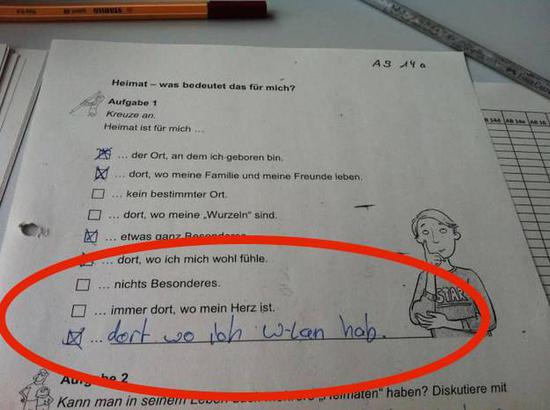 STABILO
AB 14a
Heimat – was bedeutet das für mich?
Aufgabe 1
Kreuze an.
Heimat ist für mich ...
... der Ort, an dem ich geboren bin.
... dort, wo meine Familie und meine Freunde leben.
... kein bestimmter Ort.
... dort, wo meine „Wurzeln“ sind.
... etwas ganz Besonderes.
... dort, wo ich mich wohl fühle.
... nichts Besonderes.
... immer dort, wo mein Herz ist.
... dort wo ich w-lan hab.
STAR
Aufgabe 2
Kann man in seinem Leben auch mehrere „Heimaten“ haben? Diskutiere mit